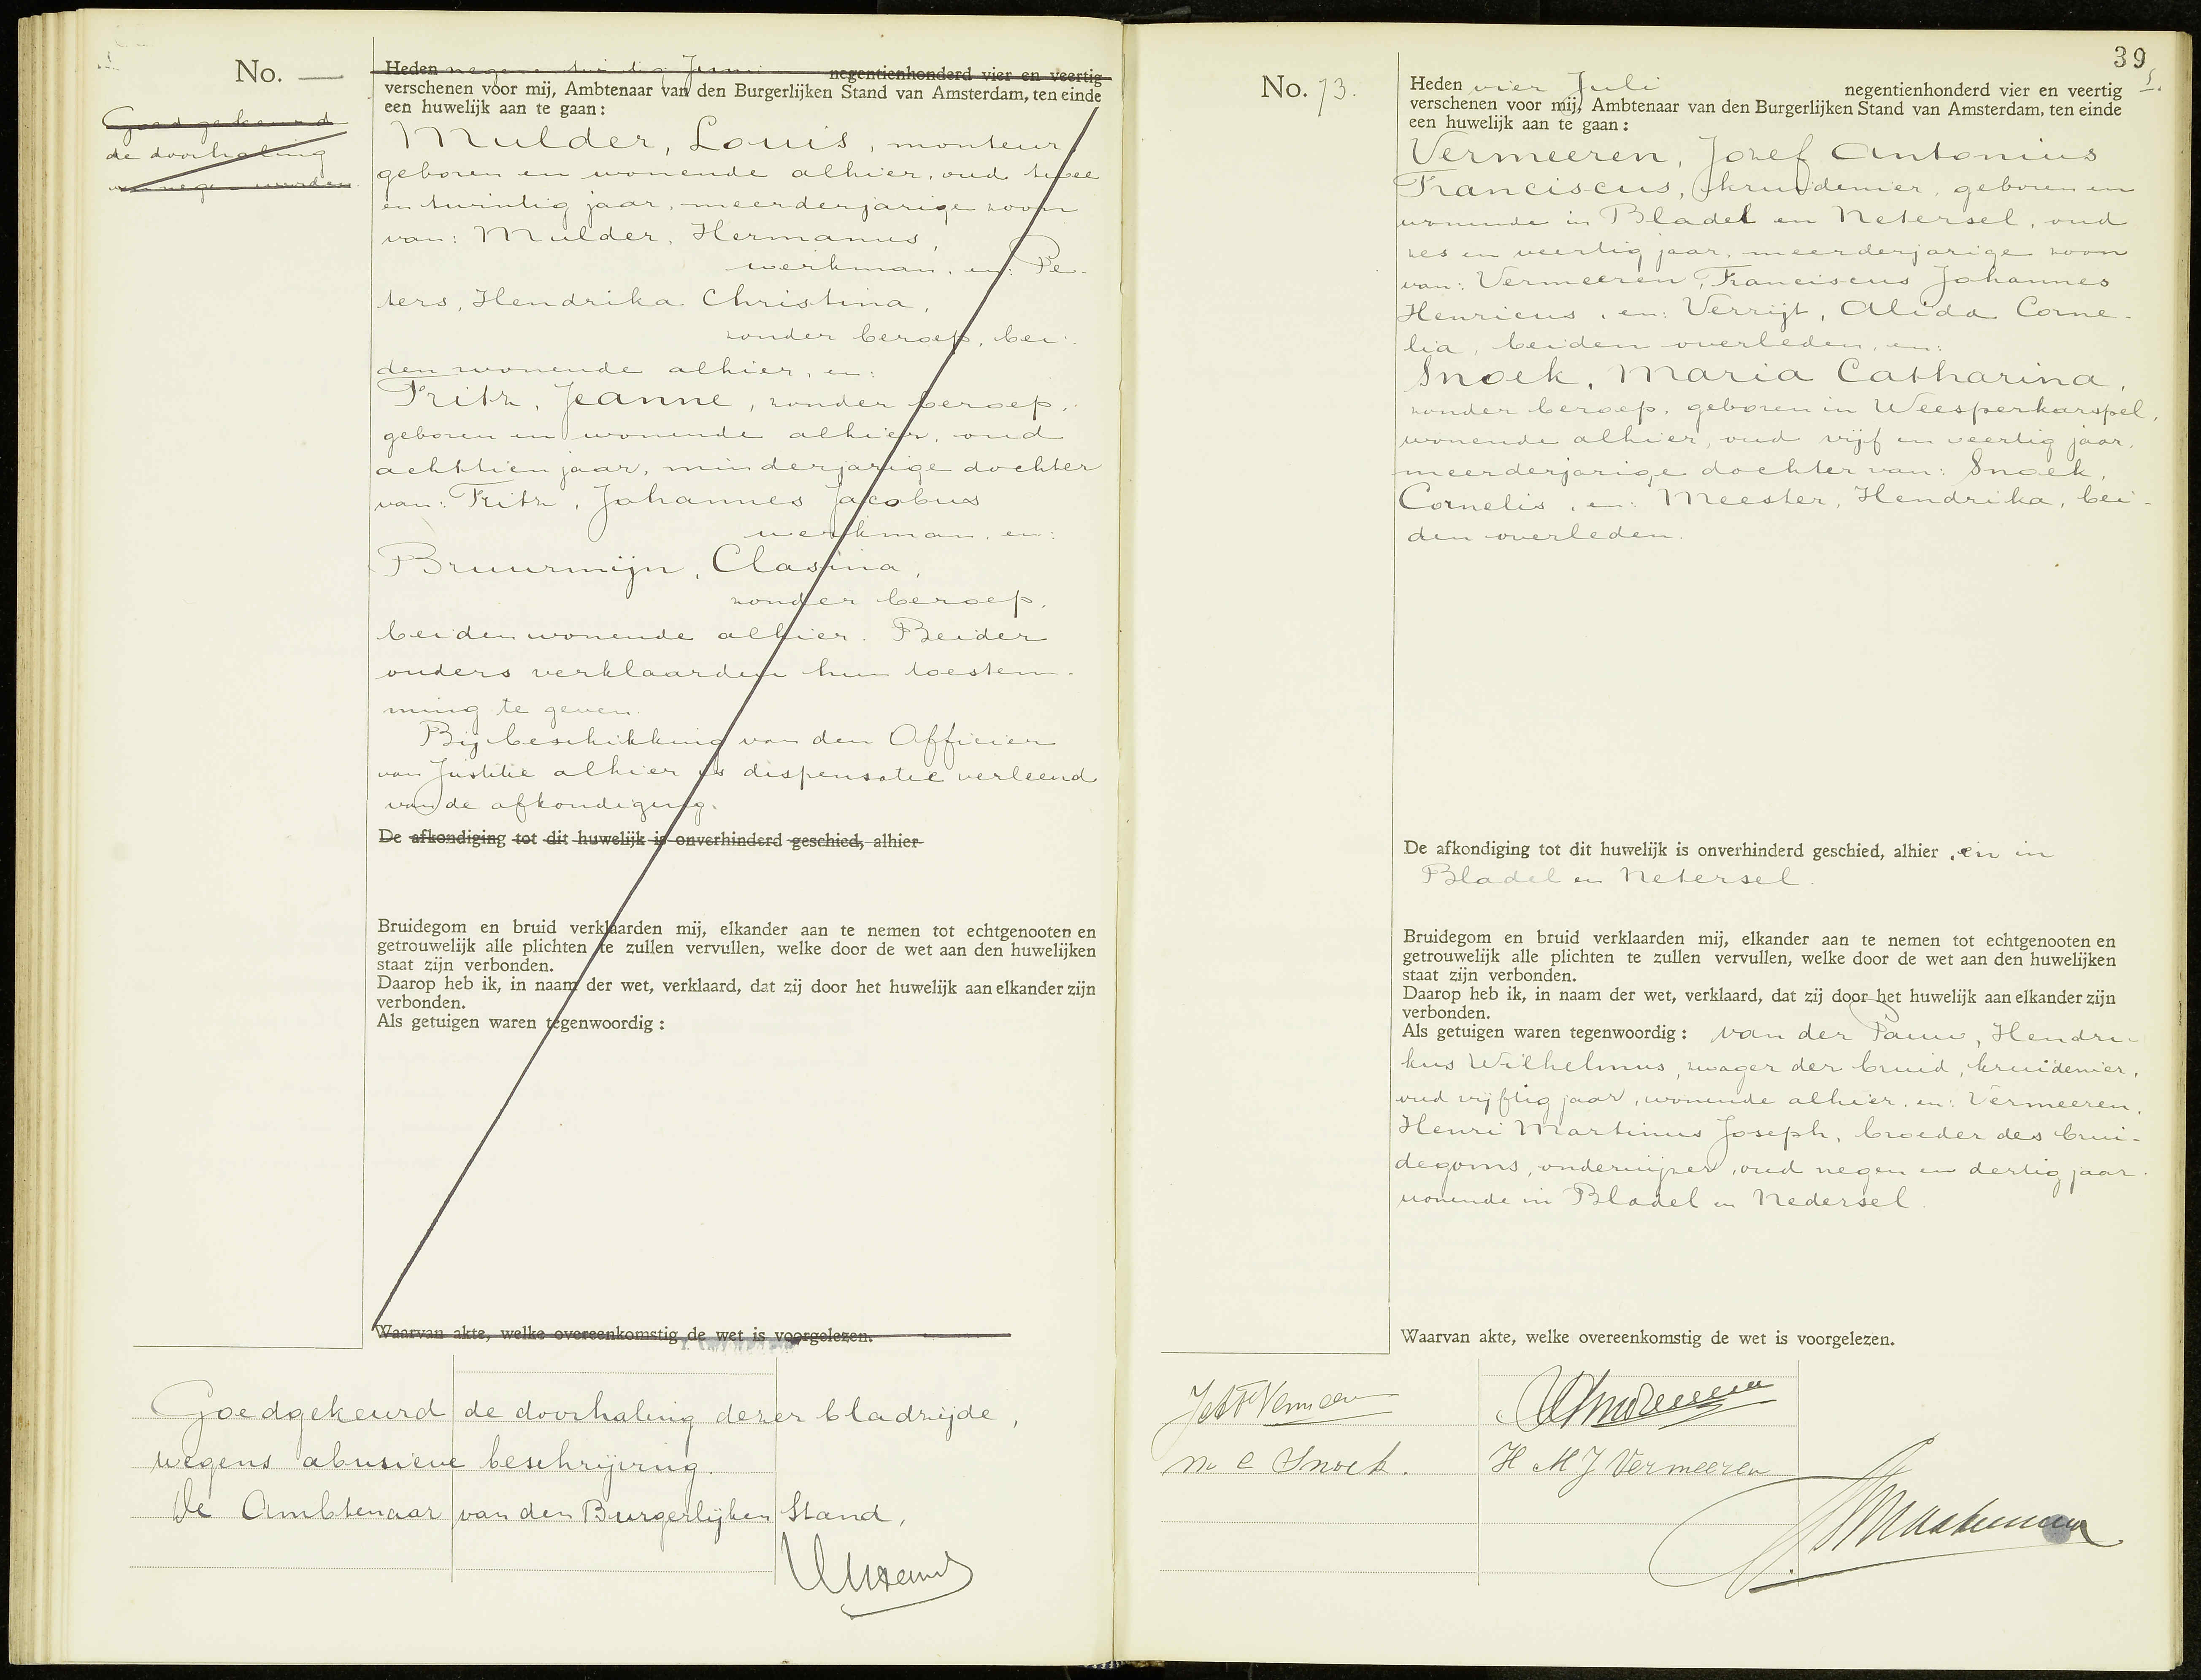 No. —
Goedgekeurd
de doorhaling
van negen woorden
Heden negen en twintig Juni negentienhonderd vier en veertig
verschenen voor mij, Ambtenaar van den Burgerlijken Stand van Amsterdam, ten einde
een huwelijk aan te gaan:
Mulder, Louis, monteur,
geboren en wonende alhier, oud twee
en twintig jaar, meerderjarige zoon
van: Mulder, Hermanus,
werkman, en: Pe-
ters, Hendrika Christina,
zonder beroep, bei-
den wonende alhier, en:
Fritz, Jeanne, zonder beroep,
geboren en wonende alhier, oud
achttien jaar, minderjarige dochter
van: Fritz, Johannes Jacobus
werkman, en:
Bruurmijn, Clasina,
zonder beroep,
beiden wonende alhier. Beider
ouders verklaarden hun toestem-
ming te geven.
Bij beschikking van den Officier
van Justitie alhier is dispensatie verleend
van de afkondiging.
De afkondiging tot dit huwelijk is onverhinderd geschied, alhier
Bruidegom en bruid verklaarden mij, elkander aan te nemen tot echtgenooten en
getrouwelijk alle plichten te zullen vervullen, welke door de wet aan den huwelijken
staat zijn verbonden.
Daarop heb ik, in naam der wet, verklaard, dat zij door het huwelijk aan elkander zijn
verbonden.
Als getuigen waren tegenwoordig:
Waarvan akte, welke overeenkomstig de wet is voorgelezen.
Goedgekeurd de doorhaling dezer bladzijde,
wegens abusieve beschrijving.
De Ambtenaar van den Burgerlijken Stand,
39
No. 73.
Heden vier Juli negentienhonderd vier en veertig
verschenen voor mij, Ambtenaar van den Burgerlijken Stand van Amsterdam, ten einde
een huwelijk aan te gaan:
Vermeeren, Jozef Antonius
Franciscus, kruidenier, geboren en
wonende in Bladel en Netersel, oud
zes en veertig jaar, meerderjarige zoon
van: Vermeeren, Franciscus Johannes
Henricus, en: Verrijt, Alida Corne-
lia, beiden overleden, en:
Snoek, Maria Catharina,
zonder beroep, geboren in Weesperkarspel,
wonende alhier, oud vijf en veertig jaar,
meerderjarige dochter van: Snoek,
Cornelis, en: Meester, Hendrika, bei-
den overleden.
De afkondiging tot dit huwelijk is onverhinderd geschied, alhier, en in
Bladel en Netersel.
Bruidegom en bruid verklaarden mij, elkander aan te nemen tot echtgenooten en
getrouwelijk alle plichten te zullen vervullen, welke door de wet aan den huwelijken
staat zijn verbonden.
Daarop heb ik, in naam der wet, verklaard, dat zij door het huwelijk aan elkander zijn
verbonden.
Als getuigen waren tegenwoordig: van der Pauw, Hendri-
kus Wilhelmus, zwager der bruid, kruidenier,
oud vijftig jaar, wonende alhier, en: Vermeeren,
Henri Martinus Joseph, broeder des brui-
degoms, onderwijzer, oud negen en dertig jaar,
wonende in Bladel en Nedersel.
Waarvan akte, welke overeenkomstig de wet is voorgelezen.
J A F Vermeeren
M C Snoek.
H M J Vermeeren